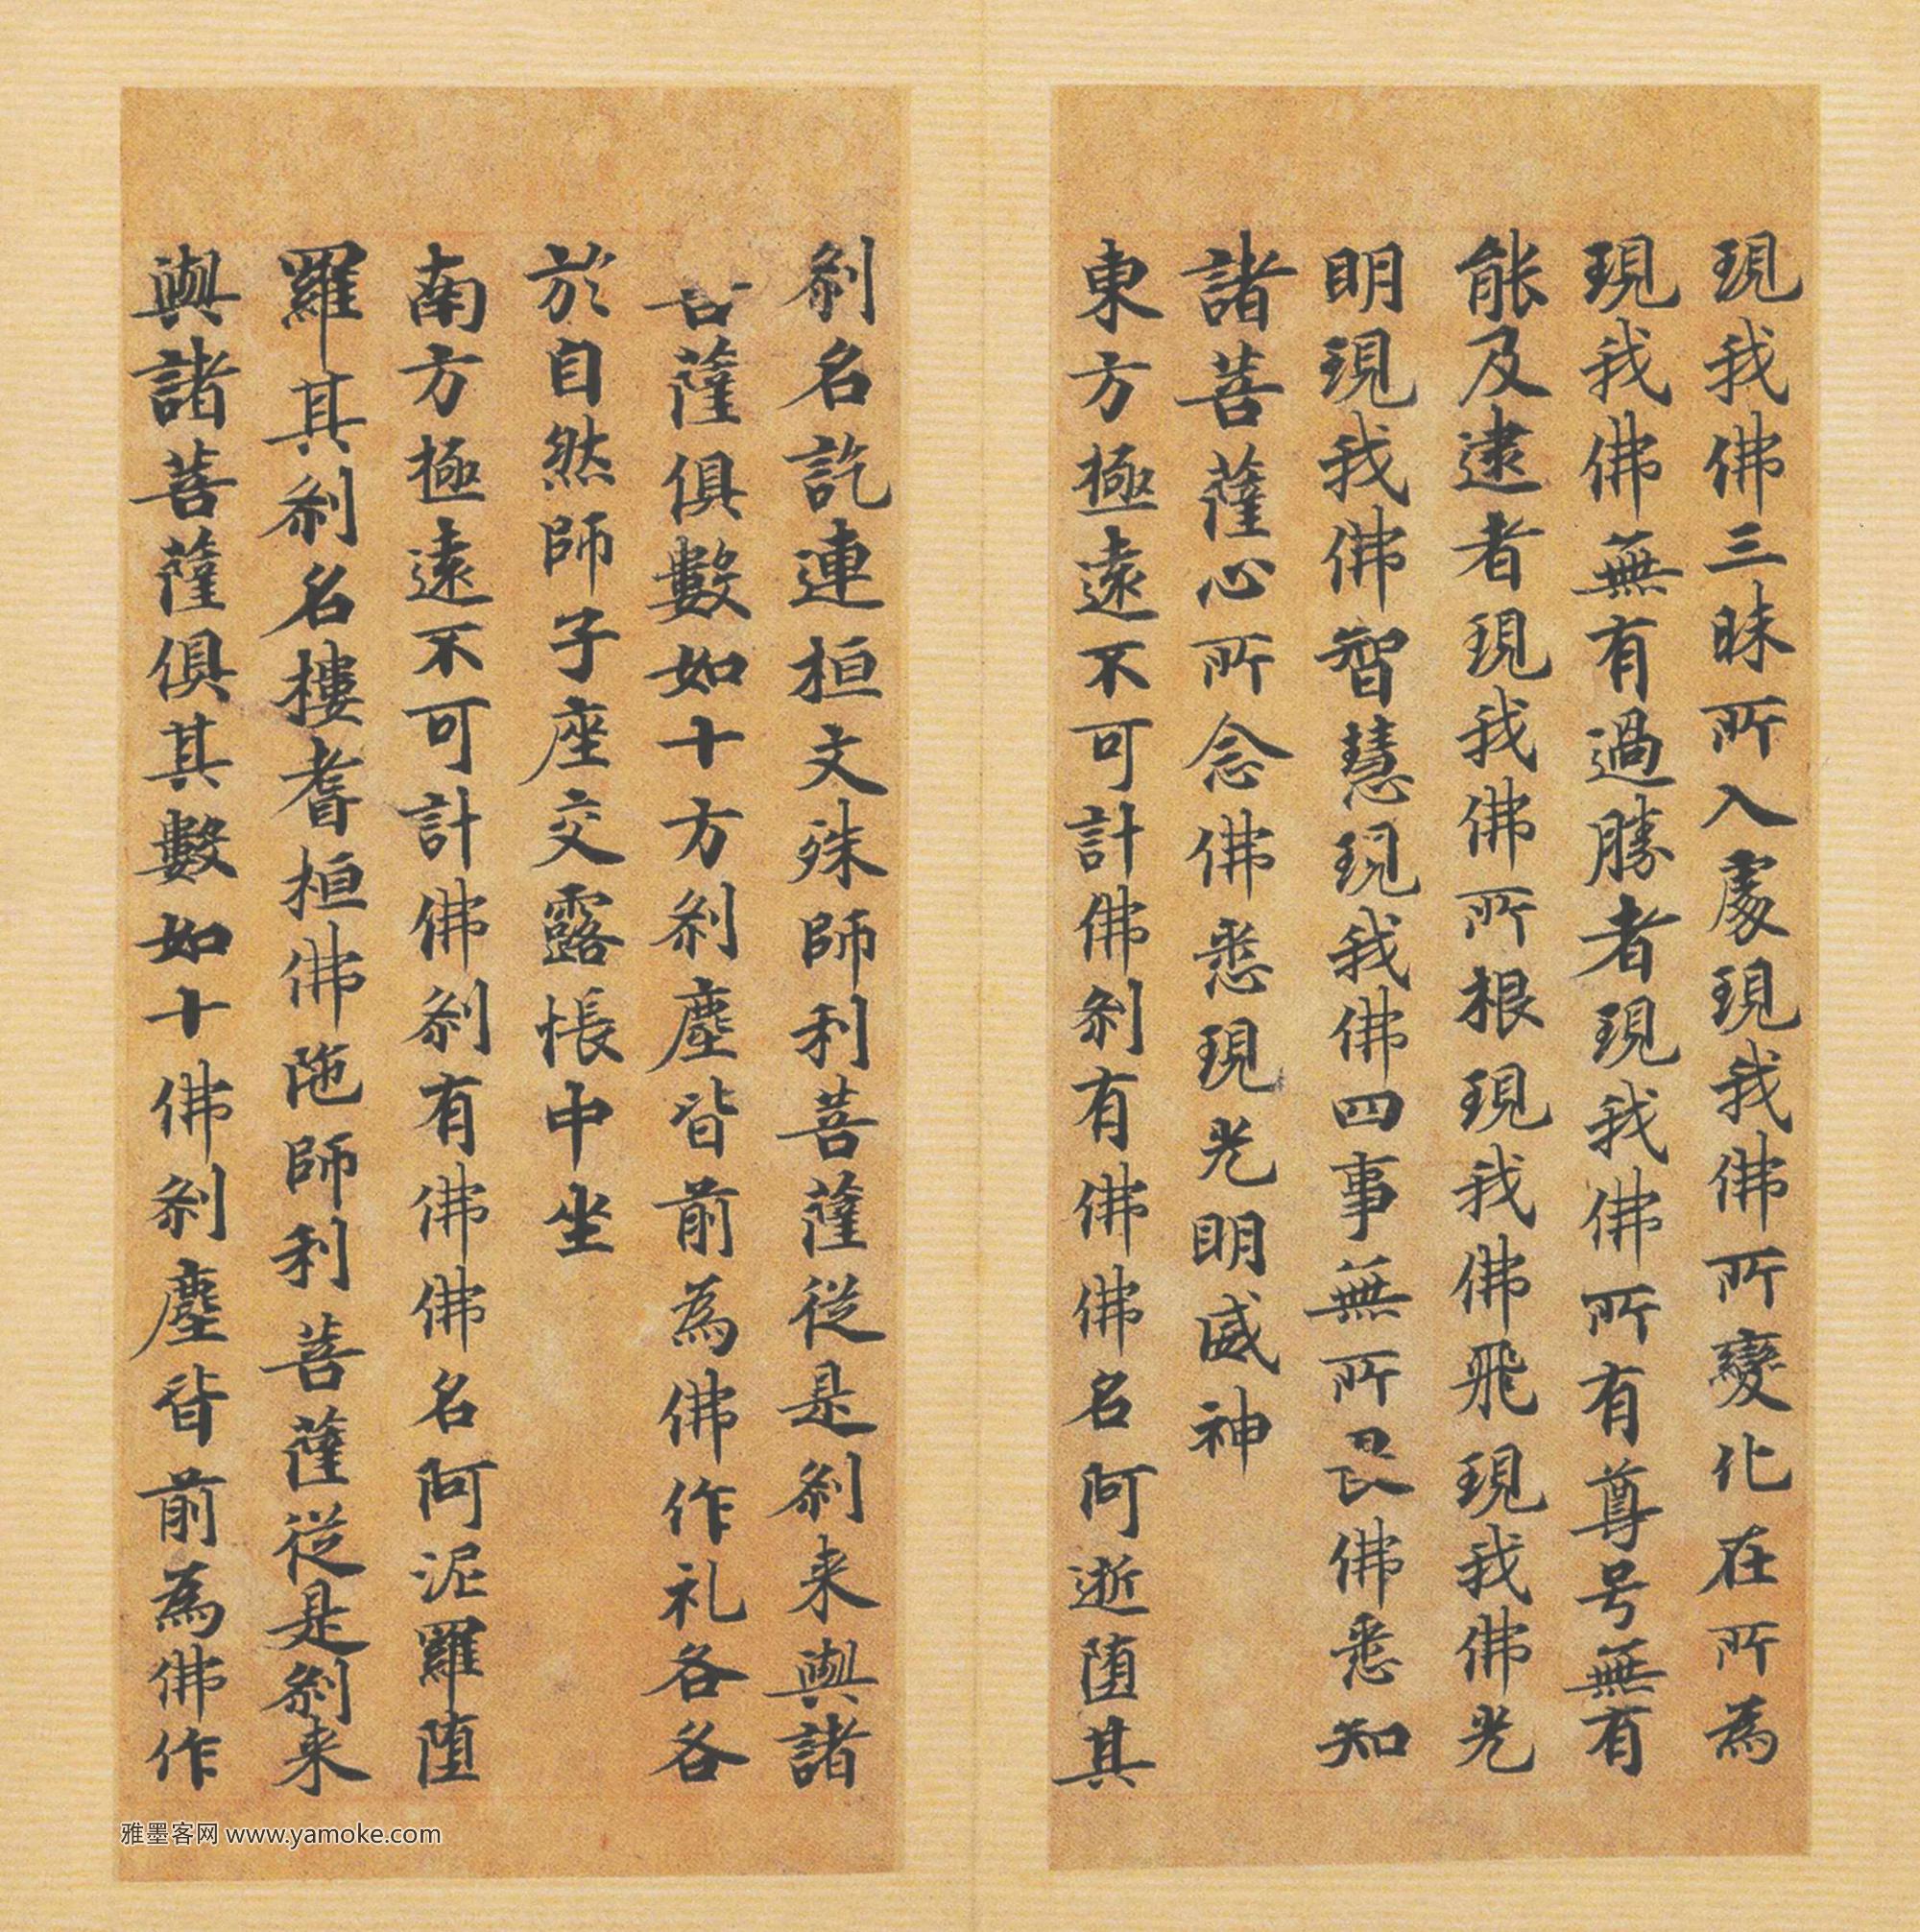 現我佛三昧所入處現我佛所變化在所為
現我佛無有過勝者現我佛所有尊号無有
能及逮者現我佛所根現我佛飛現我佛光
明現我佛智慧現我佛四事無所畏佛悉知
諸菩薩心所念佛悉現光明威神
東方極遠不可計佛剎有佛佛名阿逝墮其
剎名訖連桓文殊師利菩薩從是剎来與諸
菩薩俱數如十方剎塵皆前為佛作礼各各
於自然師子座交露帳中坐
南方極遠不可計佛剎有佛佛名阿泥羅墮
羅其剎名樓耆桓佛陁師利菩薩從是剎来
與諸菩薩俱其數如十佛剎塵皆前為佛作
雅墨客网 www.yamoke.com